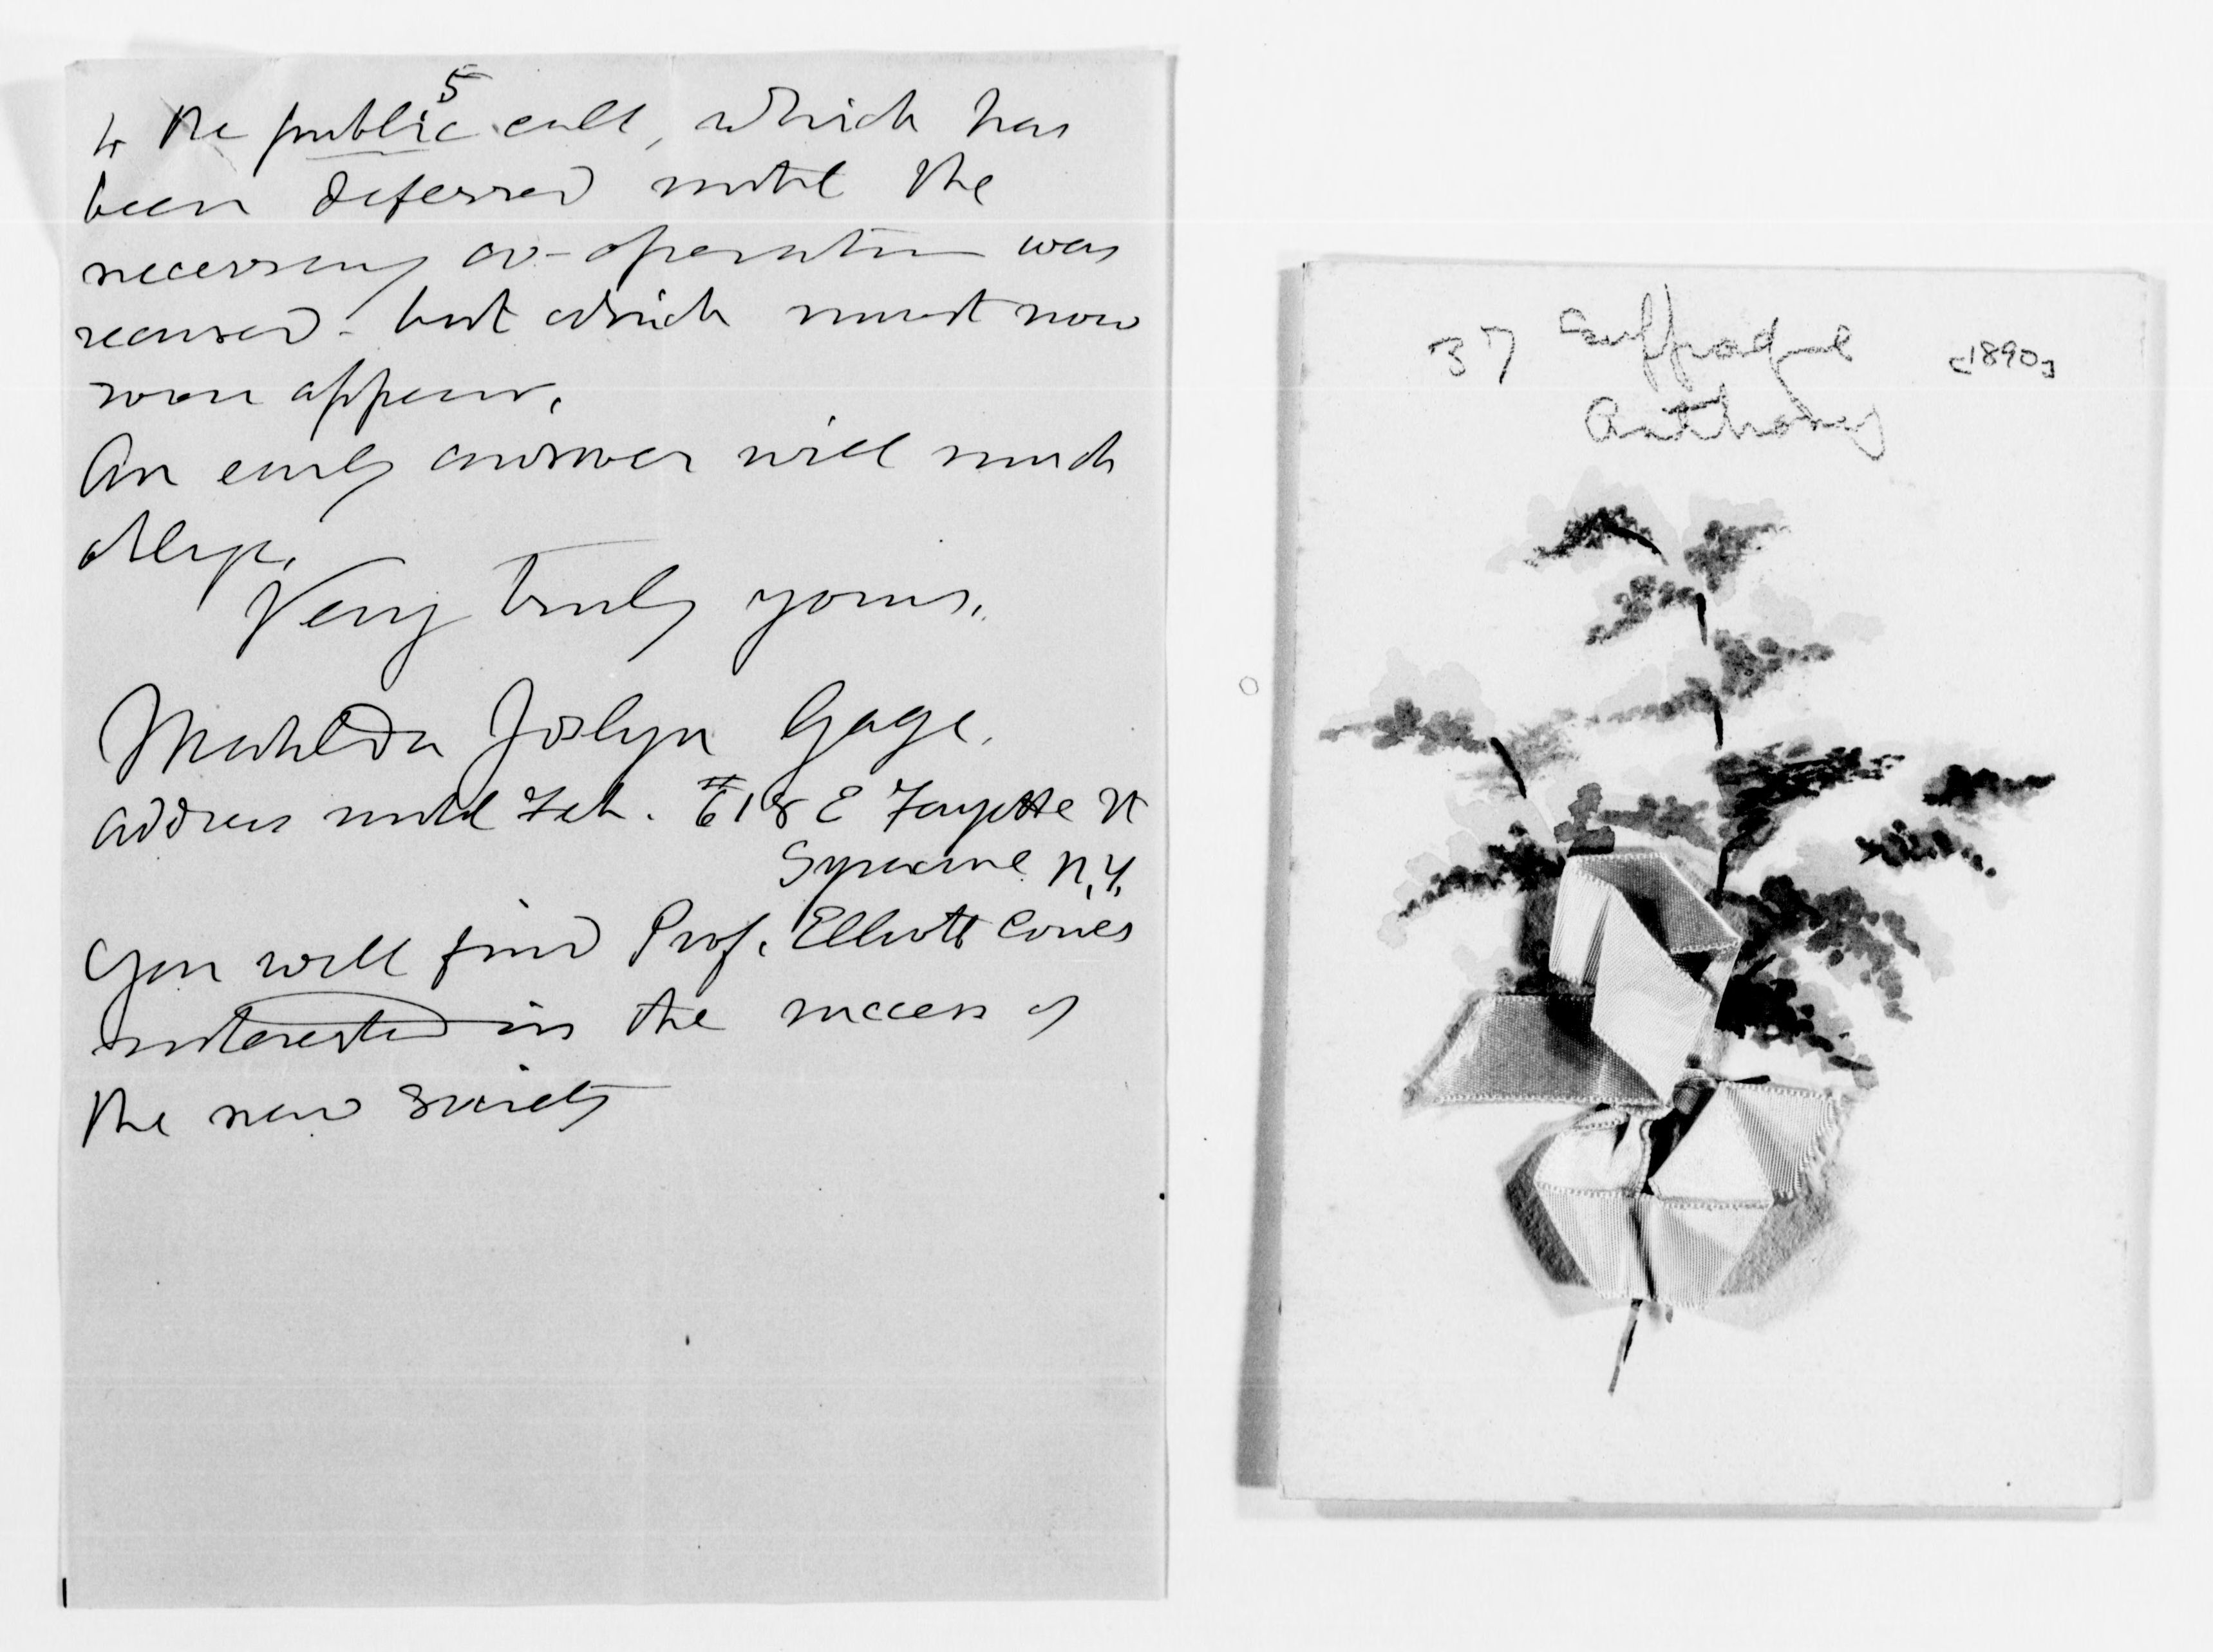 5
to the public call, which has
been deferred until the
necessary co-operation was
secured - but which must now
soon appear.
An early answer will much
oblige,
Very truly yours,
Matilda Joslyn Gage.
address until Feb. # 618 E Fayette St
Syracuse N.Y.
You will find Prof. Elliott Coues
interested in the success of
the new society
37 Suffrage [1890]
Anthony